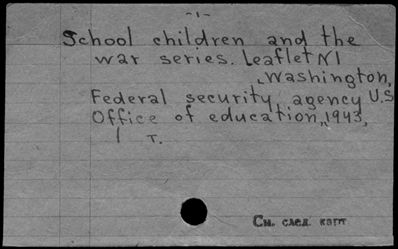 -1-
School children and the
war series. Leaflet N1
Washington,
Federal security agency U.S.
Office of education, 1943,
1 т.
См. след. карт.